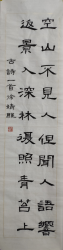 空山不見人但聞人語響
返景入深林復照青苔上
古詩一首